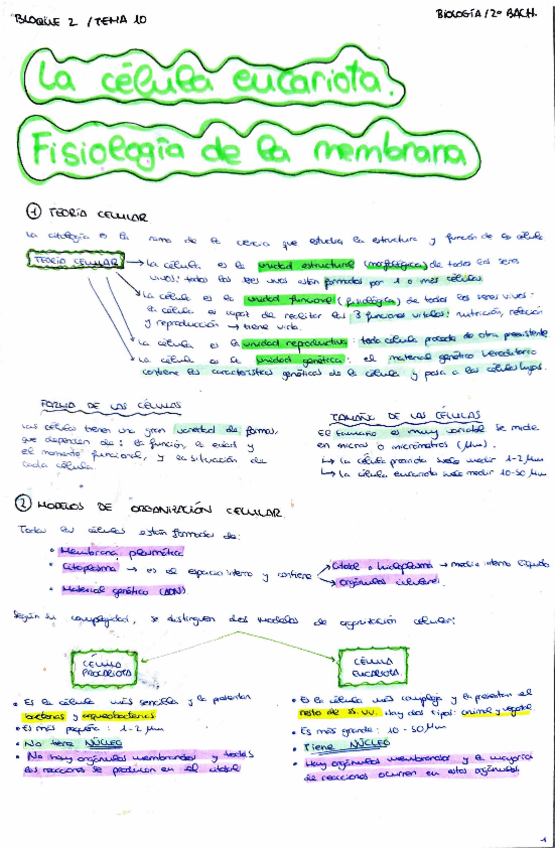 BLOQUE 2 / TEMA 10
BIOLOGÍA / 2º BACH.
La célula eucariota.
Fisiología de la membrana
1 TEORÍA CELULAR
La citología es la rama de la ciencia que estudia la estructura y función de la célula
TEORÍA CELULAR
→ La célula es la unidad estructural (morfológica) de todos los seres
vivos: todos los seres vivos están formados por 1 o más células
→ La célula es la unidad funcional (fisiológica) de todos los seres vivos:
la célula es capaz de realizar las 3 funciones vitales: nutrición, relación
y reproducción → tiene vida.
→ La célula es la unidad reproductiva: toda célula procede de otra preexistente
→ La célula es la unidad genética: el material genético hereditario
contiene las características genéticas de la célula y pasa a las células hijas.
FORMA DE LAS CÉLULAS
Las células tienen una gran variedad de formas,
que dependen de: la función, la edad y
el momento funcional, y la situación de
cada célula.
TAMAÑO DE LAS CÉLULAS
El tamaño es muy variable se mide
en micras o micrómetros (μm).
↳ La célula procariota suele medir 1-2 μm
↳ La célula eucariota suele medir 10-50 μm
2 MODELOS DE ORGANIZACIÓN CELULAR
Todas las células están formadas de:
• Membrana plasmática
• Citoplasma → es el espacio interno y contiene
→ Citosol o hialoplasma → medio interno líquido
→ Orgánulos celulares
• Material genético (ADN)
Según su complejidad, se distinguen dos modelos de organización celular:
CÉLULA
PROCARIOTA
• Es la célula más sencilla y la presentan
bacterias y arqueobacterias
• Es más pequeña: 1-2 μm
• No tiene NÚCLEO
• No hay orgánulos membranosos y todas
las reacciones se producen en el citosol
CÉLULA
EUCARIOTA
• Es la célula más compleja y la presentan el
resto de ss.vv. Hay dos tipos: animal y vegetal
• Es más grande: 10-50 μm
• Tiene NÚCLEO
• Hay orgánulos membranosos y la mayoría
de reacciones ocurren en estos orgánulos.
1